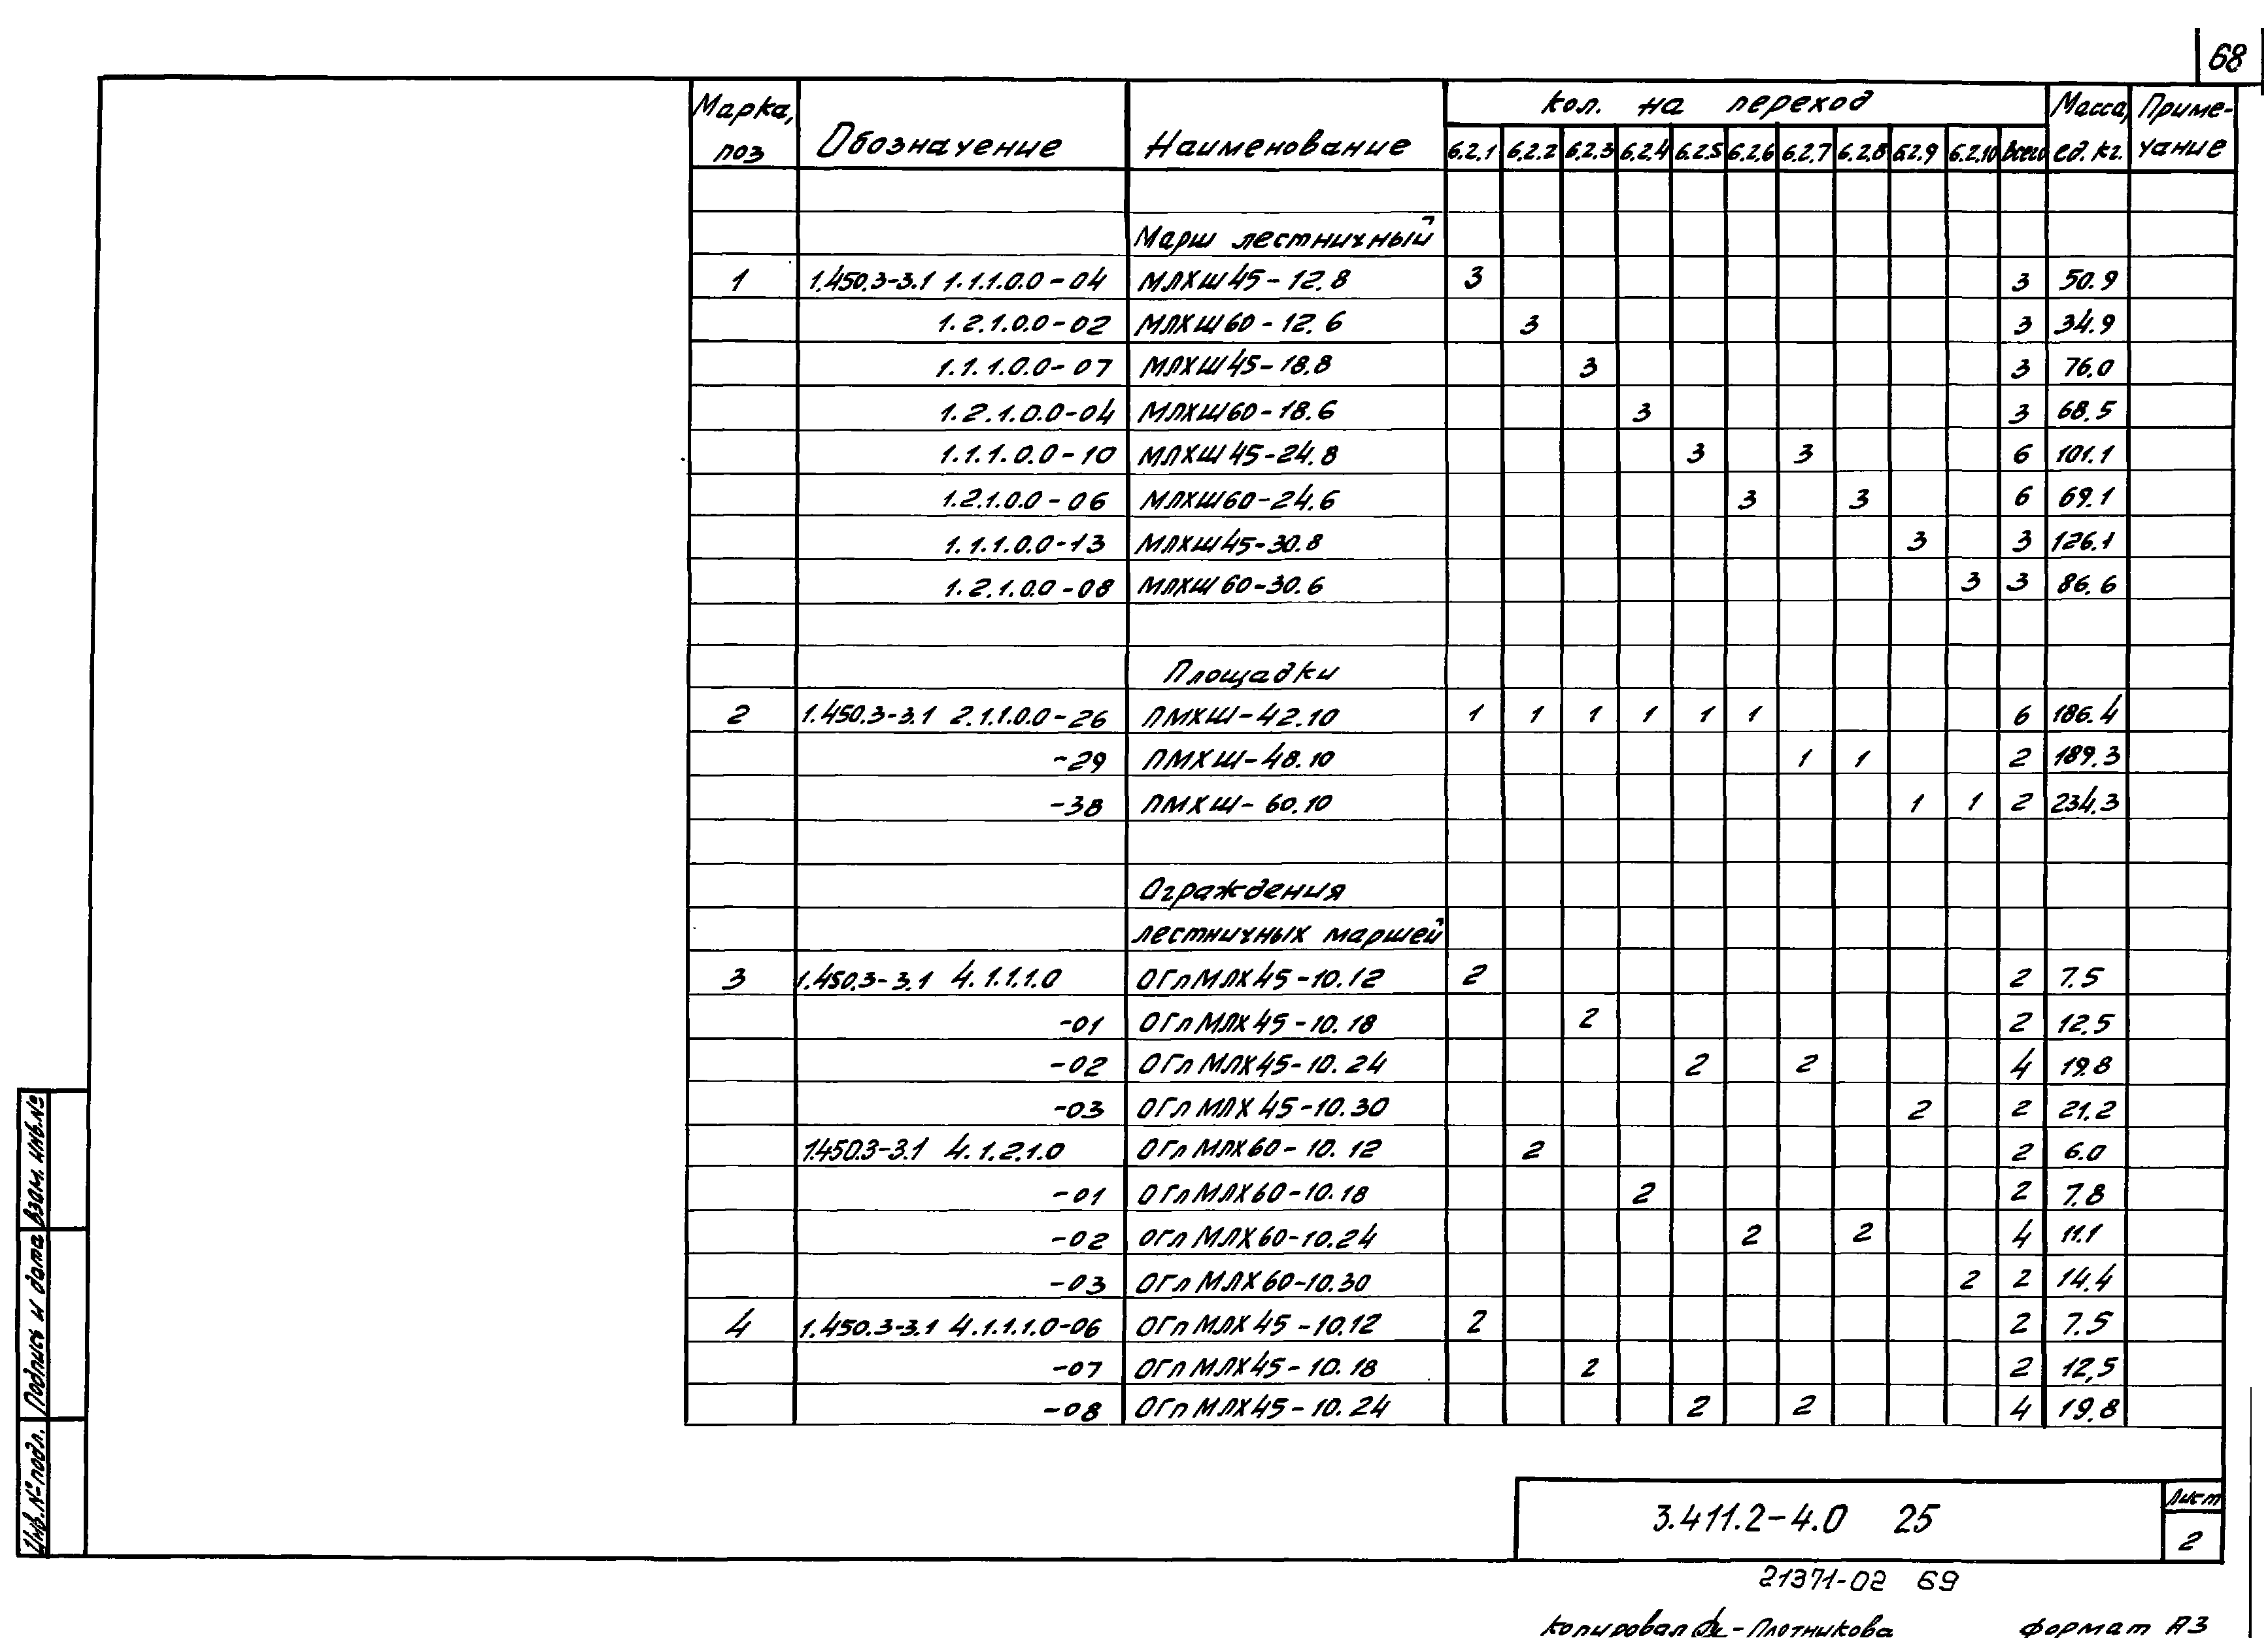 68
Марка, поз Обозначение Наименование кол. на переход Масса, ед. кг. Приме-чание
6.2.1 6.2.2 6.2.3 6.2.4 6.2.5 6.2.6 6.2.7 6.2.8 6.2.9 6.2.10 Всего
Марш лестничный
1 1.450.3-3.1 1.1.1.0.0-04 МЛХШ45-12.8 3 3 50.9
1.2.1.0.0-02 МЛХШ60-12.6 3 3 34.9
1.1.1.0.0-07 МЛХШ45-18.8 3 3 76.0
1.2.1.0.0-04 МЛХШ60-18.6 3 3 68.5
1.1.1.0.0-10 МЛХШ45-24.8 3 3 6 101.1
1.2.1.0.0-06 МЛХШ60-24.6 3 3 6 69.1
1.1.1.0.0-13 МЛХШ45-30.8 3 3 126.1
1.2.1.0.0-08 МЛХШ60-30.6 3 3 86.6
Площадки
2 1.450.3-3.1 2.1.1.0.0-26 ПМХШ-42.10 1 1 1 1 1 1 6 186.4
-29 ПМХШ-48.10 1 1 2 189.3
-38 ПМХШ-60.10 1 1 2 234.3
Ограждения
лестничных маршей
3 1.450.3-3.1 4.1.1.1.0 ОГлМЛХ45-10.12 2 2 7.5
-01 ОГлМЛХ45-10.18 2 2 12.5
-02 ОГлМЛХ45-10.24 2 2 4 19.8
-03 ОГлМЛХ45-10.30 2 2 21.2
1.450.3-3.1 4.1.2.1.0 ОГлМЛХ60-10.12 2 2 6.0
-01 ОГлМЛХ60-10.18 2 2 7.8
-02 ОГлМЛХ60-10.24 2 2 4 11.1
-03 ОГлМЛХ60-10.30 2 2 14.4
4 1.450.3-3.1 4.1.1.1.0-06 ОГпМЛХ45-10.12 2 2 7.5
-07 ОГпМЛХ45-10.18 2 2 12,5
-08 ОГпМЛХ45-10.24 2 2 4 19.8
Инв. № подл. Подпись и дата Взам. инв. №
3.411.2-4.0 25
Лист
2
21371-02 69
Копировал -Плотникова Формат А3